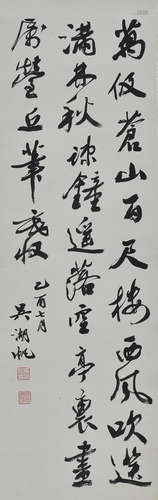 萬仞蒼山百尺樓西風吹送
滿林秋疎鐘遥落空亭裏畫
屬營丘筆武收
乙酉七月
吳湖帆